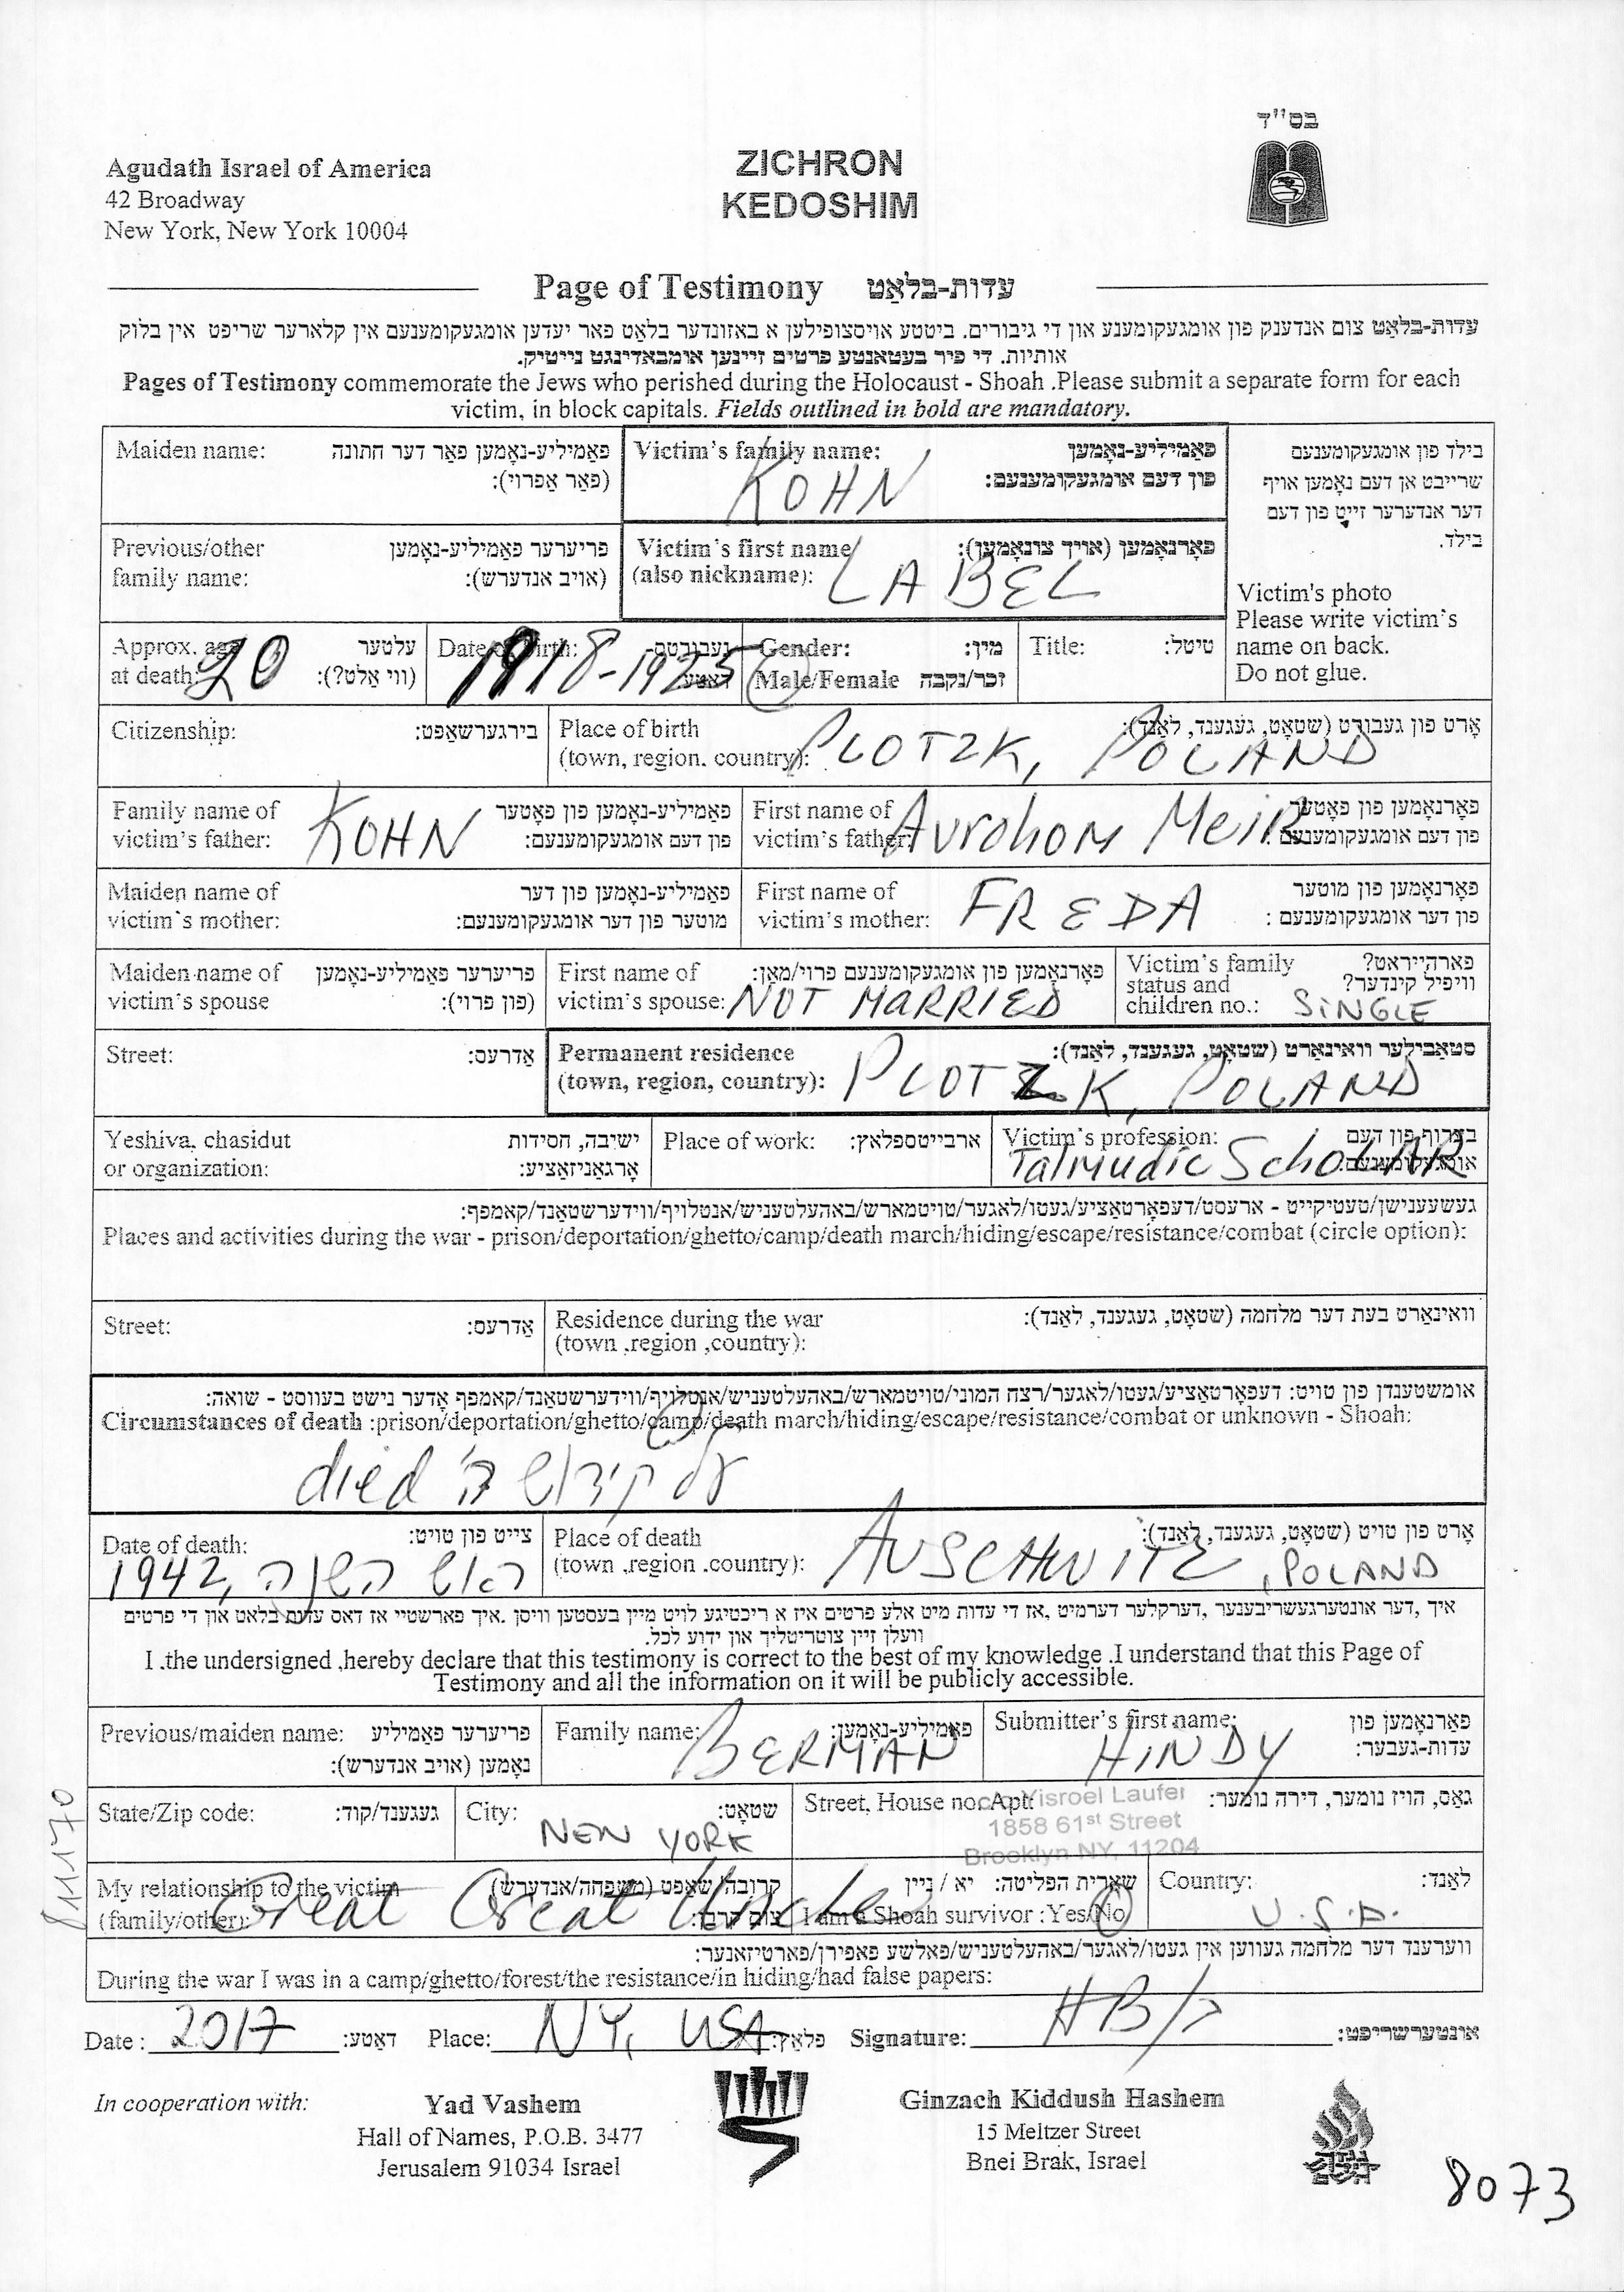 בס"ד
Agudath Israel of America
42 Broadway
New York, New York 10004
ZICHRON
KEDOSHIM
Page of Testimony עדות-בלאַט
עדות-בלאַט צום אנדענק פון אומגעקומענע און די גיבורים. ביטטע אויסצופילען א באזונדער בלאַט פאר יעדען אומגעקומענעם אין קלארער שריפט אין בלוק
אותיות. די פיר בעטאנטע פרטים זיינען אומבאדינגט נייטיק.
Pages of Testimony commemorate the Jews who perished during the Holocaust - Shoah .Please submit a separate form for each
victim, in block capitals. Fields outlined in bold are mandatory.
Maiden name: פאַמיליע-נאָמען פאר דער חתונה
(פאַר אַפרוי):
Victim's family name: פאַמיליע-נאָמען
פון דעם אומגעקומענעם:
KOHN
בילד פון אומגעקומענעם
שרייבט אן דעם נאָמען אויף
דער אנדערער זייט פון דעם
בילד.
Previous/other פריערער פאַמיליע-נאָמען
family name: (אויב אנדערש):
Victim's first name פאָרנאָמען (אויך צונאָמען):
(also nickname): LABEL
Victim's photo
Please write victim's
name on back.
Do not glue.
Approx. age עלטער
at death: 20 (ווי אַלט?):
Date of birth: געבורטס-
דאַטע 1918-1925
Gender: מין:
Male/Female זכר/נקבה
Title: טיטל:
Citizenship: בירגערשאַפט:
Place of birth אָרט פון געבורט (שטאָט, געגענד, לאַנד):
(town, region. country): PLOTZK, POLAND
Family name of פאַמיליע-נאָמען פון פאָטער
victim's father: KOHN פון דעם אומגעקומענעם:
First name of פאָרנאָמען פון פאָטער
victim's father: Avrohom Meir פון דעם אומגעקומענעם
Maiden name of פאַמיליע-נאָמען פון דער
victim's mother: מוטער פון דער אומגעקומענעם:
First name of פאָרנאָמען פון מוטער
victim's mother: FREDA פון דער אומגעקומענעם :
Maiden name of פריערער פאַמיליע-נאָמען
victim's spouse (פון פרוי):
First name of פאָרנאָמען פון אומגעקומענעם פרוי/מאַן:
victim's spouse: NOT MARRIED
Victim's family פארהייראט?
status and וויפיל קינדער?
children no.: SINGLE
Street: אַדרעס:
Permanent residence סטאַבילער וואוינאָרט (שטאָט, געגענד, לאַנד):
(town, region, country): PLOTZK, POLAND
Yeshiva, chasidut ישיבה, חסידות
or organization: אָרגאַניזאַציע:
Place of work: ארבייטספּלאַץ:
Victim's profession: בארוף פון דעם
אומגעקומענעם:
Talmudic SchoLAR
געשעענישן/טעטיקייט - ארעסט/דעפּאָרטאַציע/געטו/לאגער/טויטמארש/באהעלטעניש/אנטלויף/ווידערשטאַנד/קאמפף:
Places and activities during the war - prison/deportation/ghetto/camp/death march/hiding/escape/resistance/combat (circle option):
Street: אַדרעס:
Residence during the war וואוינאָרט בעת דער מלחמה (שטאָט, געגענד, לאַנד):
(town ,region ,country):
אומשטענדן פון טויט: דעפּאָרטאַציע/געטו/לאגער/רצח המוני/טויטמארש/באהעלטעניש/אנטלויף/ווידערשטאַנד/קאמפף אָדער נישט בעווסט - שואה:
Circumstances of death :prison/deportation/ghetto/camp/death march/hiding/escape/resistance/combat or unknown - Shoah:
died על קידוש ה'
Date of death: צייט פון טויט:
1942, ראש השנה
Place of death אָרט פון טויט (שטאָט, געגענד, לאַנד):
(town ,region .country): AUSCHWITZ, POLAND
איך ,דער אונטערגעשריבענער ,דערקלער דערמיט ,אז די עדות מיט אלע פרטים איז א ריכטיגע לויט מיין בעסטען וויסן .איך פארשטיי אז דאס עדות בלאט און די פרטים
וועלן זיין צוטריטליך און ידוע לכל.
I .the undersigned ,hereby declare that this testimony is correct to the best of my knowledge .I understand that this Page of
Testimony and all the information on it will be publicly accessible.
Previous/maiden name: פריערער פאַמיליע
נאָמען (אויב אנדערש):
Family name: פאַמיליע-נאָמען:
BERMAN
Submitter's first name: פאָרנאָמען פון
עדות-געבער:
HINDY
State/Zip code: געגענד/קוד:
City: שטאָט:
NEW YORK
Street, House no. Apt: גאַס, הויז נומער, דירה נומער:
c/o Yisroel Laufer
1858 61st Street
Brooklyn NY, 11204
My relationship to the victim קרובה/שאַפט (משפחה/אנדערש)
(family/other): Great Great Uncle צום קרבן:
שארית הפליטה: יא / ניין
I am a Shoah survivor :Yes/No
Country: לאַנד:
U.S.A.
ווערענד דער מלחמה געווען אין געטו/לאגער/באהעלטעניש/פאלשע פאפירן/פארטיזאנער:
During the war I was in a camp/ghetto/forest/the resistance/in hiding/had false papers:
Date : 2017 דאַטע: Place: NY, USA פּלאַץ: Signature: HB/ אונטערשריפט:
In cooperation with:
Yad Vashem
Hall of Names, P.O.B. 3477
Jerusalem 91034 Israel
Ginzach Kiddush Hashem
15 Meltzer Street
Bnei Brak, Israel
8073